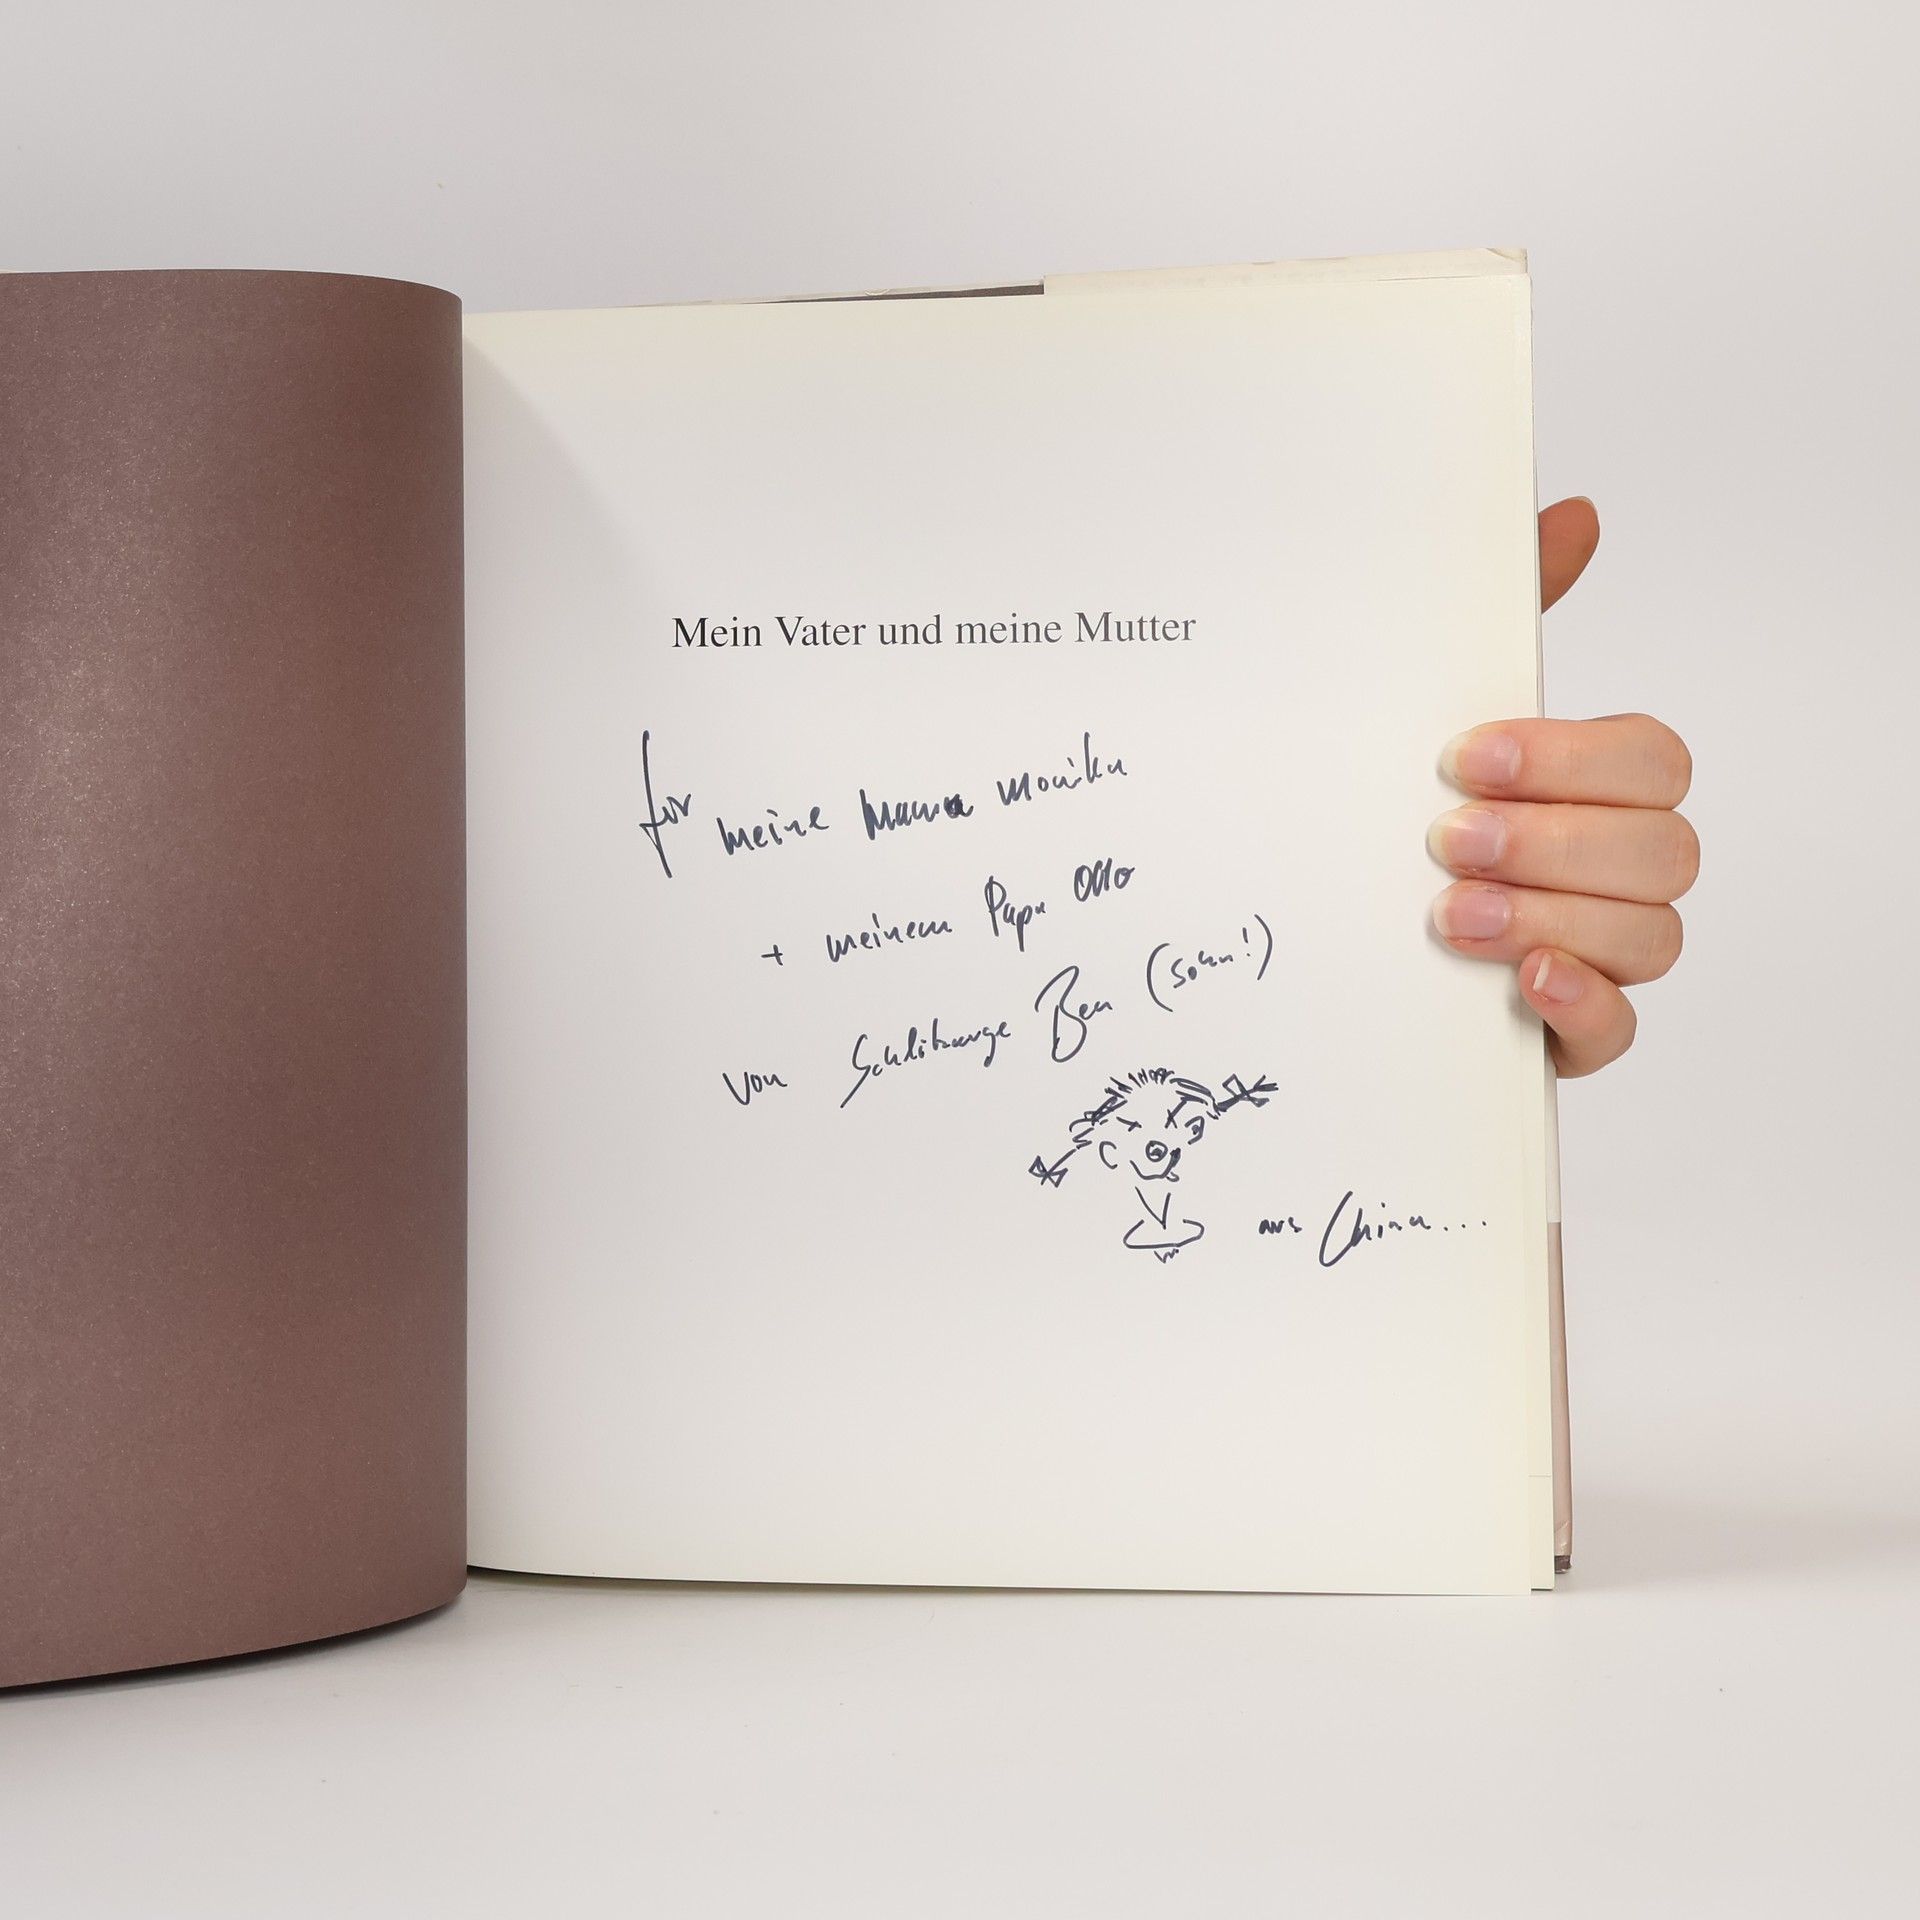 Mein Vater und meine Mutter
for meine Mama Monika
+ meinem Papa Otto
von Schlitzauge Ben (Sohn!)
aus China...